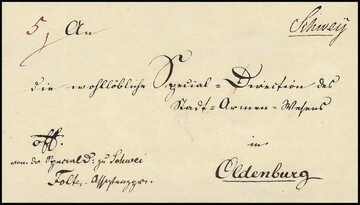 Schweÿ
5 An
die wohllöbliche Special=Direction des
Stadt=Armen=Wesens
in
Oldenburg
off.
von der Special D. zu Schwei